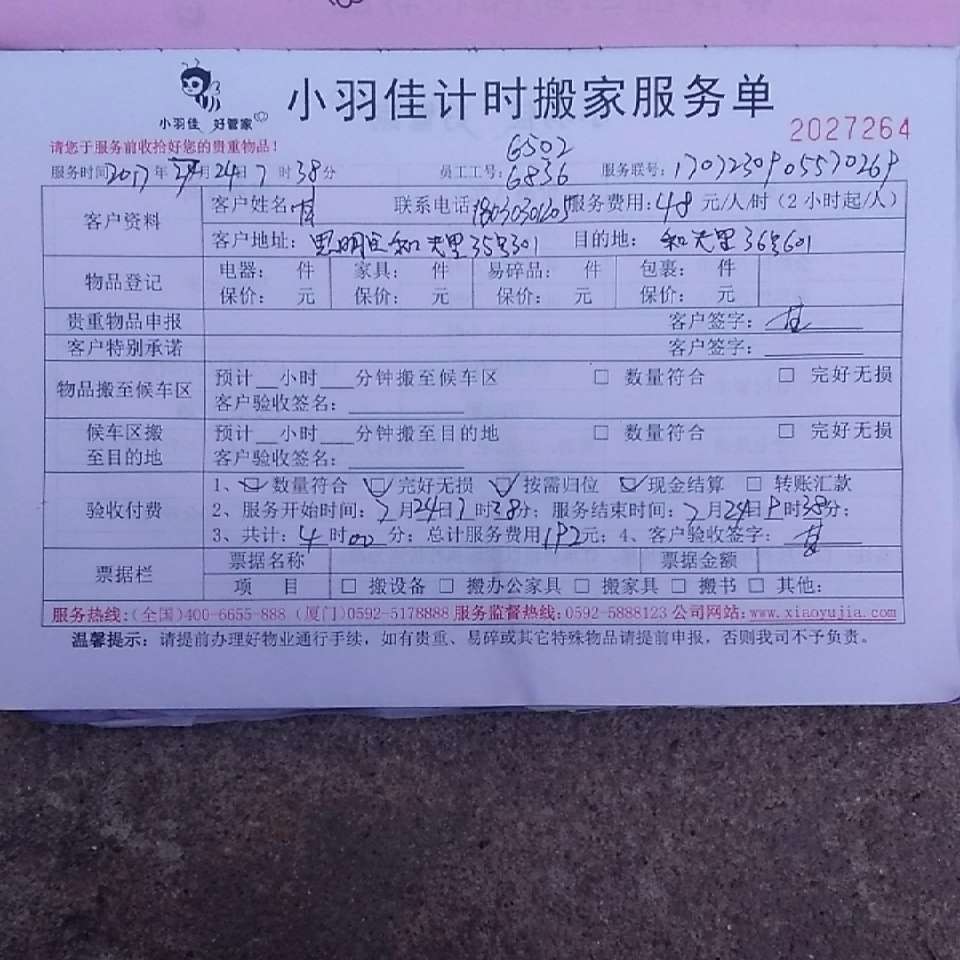 小羽佳计时搬家服务单
小羽佳 好管家
2027264
请您于服务前收拾好您的贵重物品！
服务时间2017年 月24日7时38分 员工工号：G502 6836 服务联号：1707230905570269
客户资料
客户姓名： 联系电话 服务费用：48元/人/时（2小时起/人）
客户地址：思明区 35号301 目的地： 36号601
物品登记
电器： 件 家具： 件 易碎品： 件 包裹： 件
保价： 元 保价： 元 保价： 元 保价： 元
贵重物品申报 客户签字：
客户特别承诺 客户签字：
物品搬至候车区
预计__小时___分钟搬至候车区 □ 数量符合 □ 完好无损
客户验收签名：
候车区搬至目的地
预计__小时___分钟搬至目的地 □ 数量符合 □ 完好无损
客户验收签名：
验收付费
1、☑数量符合 ☑完好无损 ☑按需归位 ☑现金结算 □ 转账汇款
2、服务开始时间：7月24日7时38分；服务结束时间：7月24日9时38分；
3、共计：4时00分；总计服务费用192元；4、客户验收签字：
票据栏
票据名称 票据金额
项 目 □ 搬设备 □ 搬办公家具 □ 搬家具 □ 搬书 □ 其他：
服务热线：(全国)400-6655-888 (厦门)0592-5178888 服务监督热线：0592-5888123 公司网站：www.xiaoyujia.com
温馨提示：请提前办理好物业通行手续，如有贵重、易碎或其它特殊物品请提前申报，否则我司不予负责。